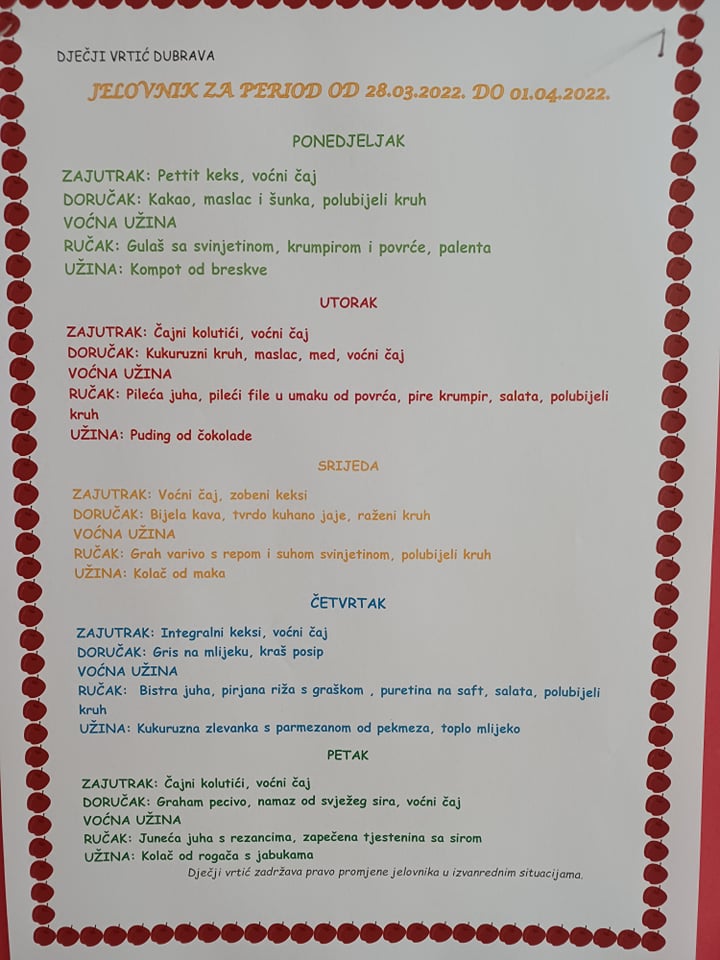 DJEČJI VRTIĆ DUBRAVA
JELOVNIK ZA PERIOD OD 28.03.2022. DO 01.04.2022.
PONEDJELJAK
ZAJUTRAK: Pettit keks, voćni čaj
DORUČAK: Kakao, maslac i šunka, polubijeli kruh
VOĆNA UŽINA
RUČAK: Gulaš sa svinjetinom, krumpirom i povrće, palenta
UŽINA: Kompot od breskve
UTORAK
ZAJUTRAK: Čajni kolutići, voćni čaj
DORUČAK: Kukuruzni kruh, maslac, med, voćni čaj
VOĆNA UŽINA
RUČAK: Pileća juha, pileći file u umaku od povrća, pire krumpir, salata, polubijeli
kruh
UŽINA: Puding od čokolade
SRIJEDA
ZAJUTRAK: Voćni čaj, zobeni keksi
DORUČAK: Bijela kava, tvrdo kuhano jaje, raženi kruh
VOĆNA UŽINA
RUČAK: Grah varivo s repom i suhom svinjetinom, polubijeli kruh
UŽINA: Kolač od maka
ČETVRTAK
ZAJUTRAK: Integralni keksi, voćni čaj
DORUČAK: Gris na mlijeku, kraš posip
VOĆNA UŽINA
RUČAK: Bistra juha, pirjana riža s graškom , puretina na saft, salata, polubijeli
kruh
UŽINA: Kukuruzna zlevanka s parmezanom od pekmeza, toplo mlijeko
PETAK
ZAJUTRAK: Čajni kolutići, voćni čaj
DORUČAK: Graham pecivo, namaz od svježeg sira, voćni čaj
VOĆNA UŽINA
RUČAK: Juneća juha s rezancima, zapečena tjestenina sa sirom
UŽINA: Kolač od rogača s jabukama
Dječji vrtić zadržava pravo promjene jelovnika u izvanrednim situacijama.